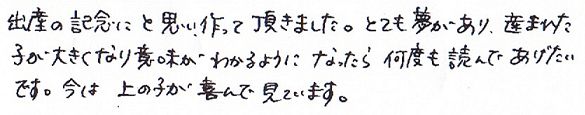 出産の記念にと思い作って頂きました。とても夢があり、産まれた
子が大きくなり意味がわかるように なったら 何度も読んで あげたい
です。今は 上の子が 喜んで 見ています。